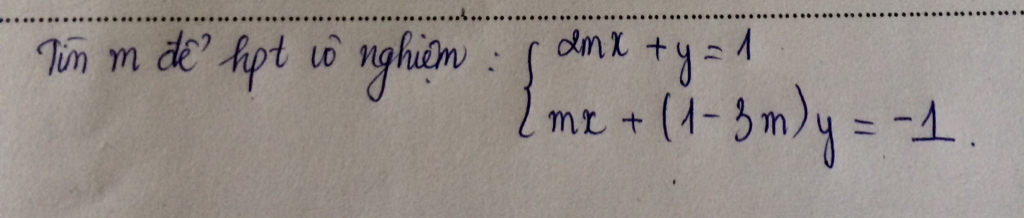 Tìm m để hpt vô nghiệm : { 2mx + y = 1
mx + (1-3m)y = -1.